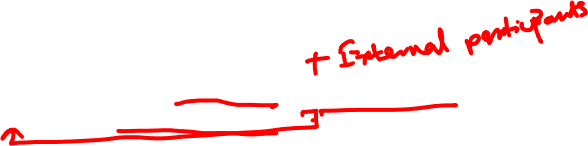 + External participants